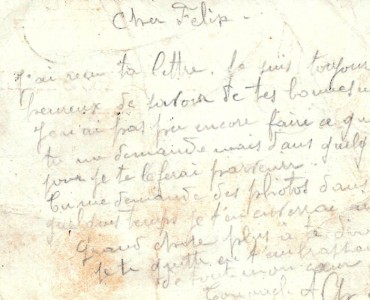 Cher Felix -
J'ai reçu ta lettre. Je suis toujour
heureux de savoir de tes bonnes
Je n'ai pas pu encore faire ce que
tu me demande mais dans quelq
jour je te le ferai parvenir.
Tu me demande des photos dans
quelques temps je t'en enverrai
grand chose plus à te dire
je te quitte en t'embrassant
de tout mon cœur